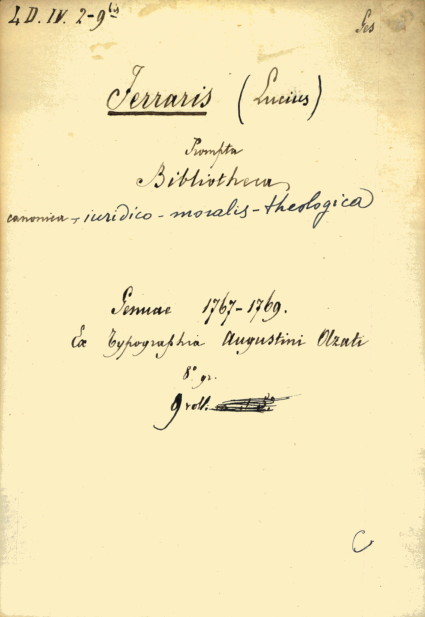 4 D. IV. 2-9bis
Ges
Ferraris (Lucius)
Prompta
Bibliotheca
canonica, iuridico-moralis-theologica
Genuae 1767-1769.
Ex Typographia Augustini Olzati
8° gr.
9 voll.
C